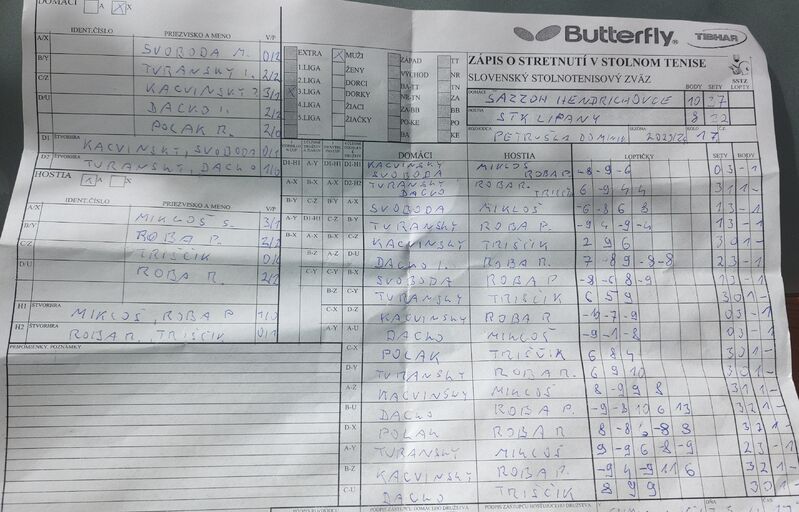 DOMÁCI A X
Butterfly®
TIBHAR
IDENT.ČÍSLO PRIEZVISKO A MENO V/P
A/X SVOBODA M. 0/2
B/Y TURANSKÝ I. 2/2
C/Z KACVINSKÝ 3/1
D/U DACKO I. 2/2
POLAK R. 2/0
D1 ŠTVORHRA KACVINSKÝ, SVOBODA 0/1
D2 ŠTVORHRA TURANSKÝ, DACKO 1/0
HOSTIA A X
IDENT.ČÍSLO PRIEZVISKO A MENO V/P
A/X MIKLOŠ S. 3/1
B/Y ROBA P. 2/2
C/Z TRIŠČIK 0/4
D/U ROBA R. 2/2
H1 ŠTVORHRA MIKLOŠ, ROBA P 1/0
H2 ŠTVORHRA ROBA R, TRIŠČIK 0/1
PRIPOMIENKY, POZNÁMKY
EXTRA X MUŽI ZÁPAD TT
1.LIGA ŽENY VÝCHOD NR
2.LIGA DORCI BA-TT TN
X 3.LIGA DORKY NR-TN ZA
4.LIGA ŽIACI ZA-BB BB
5.LIGA ŽIAČKY PO-KE PO
BA KE
ZÁPIS O STRETNUTÍ V STOLNOM TENISE
SLOVENSKÝ STOLNOTENISOVÝ ZVÄZ
SSTZ
BODY SETY LOPTY
DOMÁCI SAZZOH HENDRICHOVCE 10 37
HOSTIA STK LIPANY 8 32
PETRUŠKA DOMINIK
DOMÁCI HOSTIA LOPTIČKY SETY BODY
KACVINSKÝ SVOBODA MIKLOŠ ROBA P. -8 -9 -6 0 3 - 1
TURANSKÝ DACKO ROBA R. TRIŠČIK 6 -9 4 4 3 1 1 -
SVOBODA MIKLOŠ -6 -8 6 -8 1 3 - 1
TURANSKÝ ROBA P. -9 4 -9 -4 1 3 - 1
KACVINSKÝ TRIŠČIK 2 9 6 3 0 1 -
DACKO I. ROBA R. 7 -8 9 -8 -8 2 3 - 1
SVOBODA ROBA P -8 -6 8 -9 1 3 - 1
TURANSKÝ TRIŠČIK 6 5 9 3 0 1 -
KACVINSKÝ ROBA R -7 -9 0 3 - 1
DACKO MIKLOŠ -9 -1 -8 0 3 - 1
C-X POLAK TRIŠČIK 6 8 4 3 0 1 -
D-Y TURANSKÝ ROBA R. 6 9 10 3 0 1 -
A-Z KACVINSKÝ MIKLOŠ 8 -9 9 8 3 1 1 -
B-U DACKO ROBA P. -9 -8 10 6 13 3 2 1 -
D-X POLAK ROBA R 3 2 1 -
A-Y TURANSKÝ MIKLOŠ -9 -9 6 8 -9 2 3 - 1
B-Z KACVINSKÝ ROBA P. -9 4 -9 11 6 3 2 1 -
C-U DACKO TRIŠČIK 8 9 9 3 0 1 -